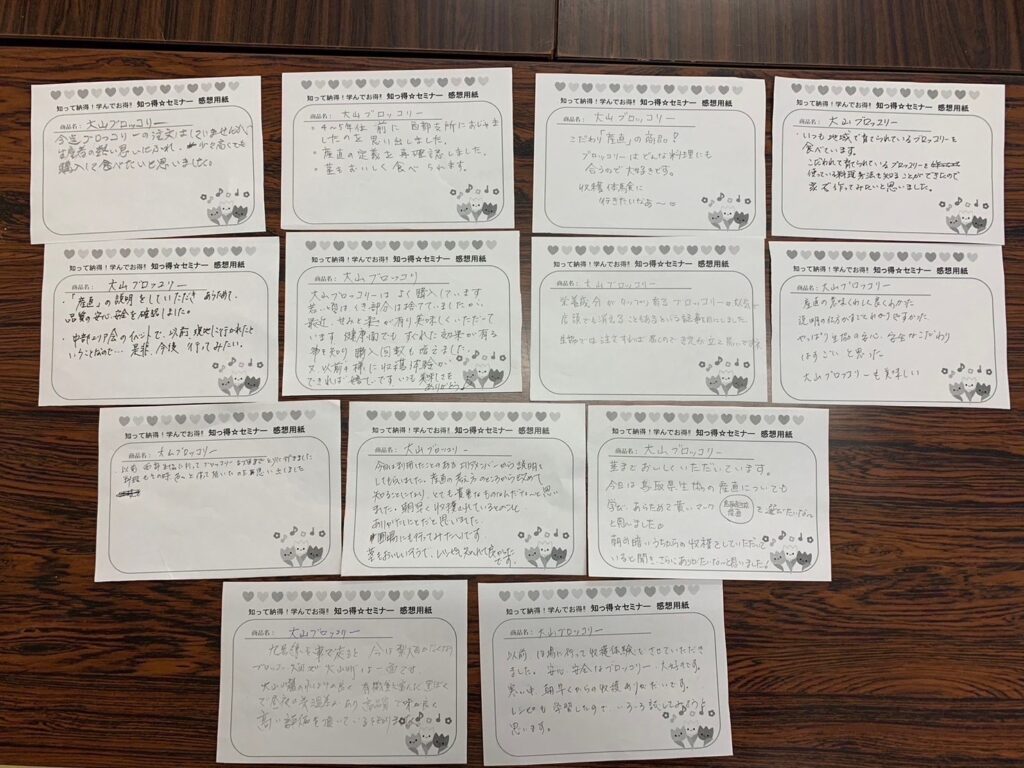 知って納得！学んでお得!! 知っ得☆セミナー 感想用紙
商品名： 大山ブロッコリー
今迄ブロッコリーの注文はしていませんが、
生産者の熱い思いにふれ、少々高くても
購入して食べたいと思いました。
知って納得！学んでお得!! 知っ得☆セミナー 感想用紙
商品名： 大山ブロッコリー
・4～5年位前に西部支所におじゃま
したのを思い出しました。
・産直の定義を再確認しました。
・茎もおいしく食べられます。
知って納得！学んでお得!! 知っ得☆セミナー 感想用紙
商品名： 大山ブロッコリー
こだわり「産直」の商品？
ブロッコリーはどんな料理にも
合うので大好きです。
収穫体験に
行きたいなぁ～
知って納得！学んでお得!! 知っ得☆セミナー 感想用紙
商品名： 大山ブロッコリー
・いつも地域で育てられているブロッコリーを
食べています。
こだわれて育てられているブロッコリーを
使っている料理方法を知ることができたので
家で作ってみたいと思いました。
知って納得！学んでお得!! 知っ得☆セミナー 感想用紙
商品名： 大山ブロッコリー
・「産直」の説明をしていただき あらためて、
品質の安心、安全を確認しました。
・中部エリア会のイベントで、以前、現地に行かれたと
いうことなので… 是非、今後 行ってみたい。
知って納得！学んでお得!! 知っ得☆セミナー 感想用紙
商品名： 大山ブロッコリー
大山ブロッコリーはよく購入しています
若い頃はくき部分は捨てていましたが、
最近、甘みと 有り美味しくいただいて
います 健康面でもすぐれた効果が有る
事を知り 購入回数も増えました。
又、以前の様に収穫体験が
できれば嬉しいです いつも美味しさを
ありがとう
知って納得！学んでお得!! 知っ得☆セミナー 感想用紙
商品名： 大山ブロッコリー
栄養成分が ブロッコリーが
店頭でも消えることもあるという記事を目にしました。
生協では注文すれば
知って納得！学んでお得!! 知っ得☆セミナー 感想用紙
商品名： 大山ブロッコリー
産直の意味もわし良くわかった
説明の仕方がすごくわかりやすかった
やっぱり生協の安心、安全がこだわり
はすごいと思った
大山ブロッコリーも美味しい
知って納得！学んでお得!! 知っ得☆セミナー 感想用紙
商品名： 大山ブロッコリー
・以前 ブロッコリー
思い出しました
知って納得！学んでお得!! 知っ得☆セミナー 感想用紙
商品名： 大山ブロッコリー
今回は利用したことのある 説明を
してもらいました。産直の考え方のところから改めて
知ることになり、とても貴重なものなんだな～と思い
ました。朝早く収穫されているとのこと
ありがたいことだと思いました。
圃場にも行ってみたいです。
茎もおいしいそうで、 良かった
です。
知って納得！学んでお得!! 知っ得☆セミナー 感想用紙
商品名： 大山ブロッコリー
茎までおいしくいただいています。
今日は鳥取県生協の産直についても
学び、あらためて貴いマーク 鳥取県生協 産直 を選びたいなぁ
と思いました
朝の暗いうちからの収穫をしていただいて
いると聞き、さらにありがたいな～と思いました！
知って納得！学んでお得!! 知っ得☆セミナー 感想用紙
商品名： 大山ブロッコリー
九号線を車で走ると 今は
ブロッコリー畑で 大山町は一面です
で昼夜の寒温差があり 高品質で味が良く
高い評価を頂いている
知って納得！学んでお得!! 知っ得☆セミナー 感想用紙
商品名： 大山ブロッコリー
以前は 行って収穫体験をさせていただき
ました。安心、安全なブロッコリー、大好きです。
寒い中、朝早くからの収穫ありがたいです。
レシピも学習したので、いろいろ試してみようと
思います。